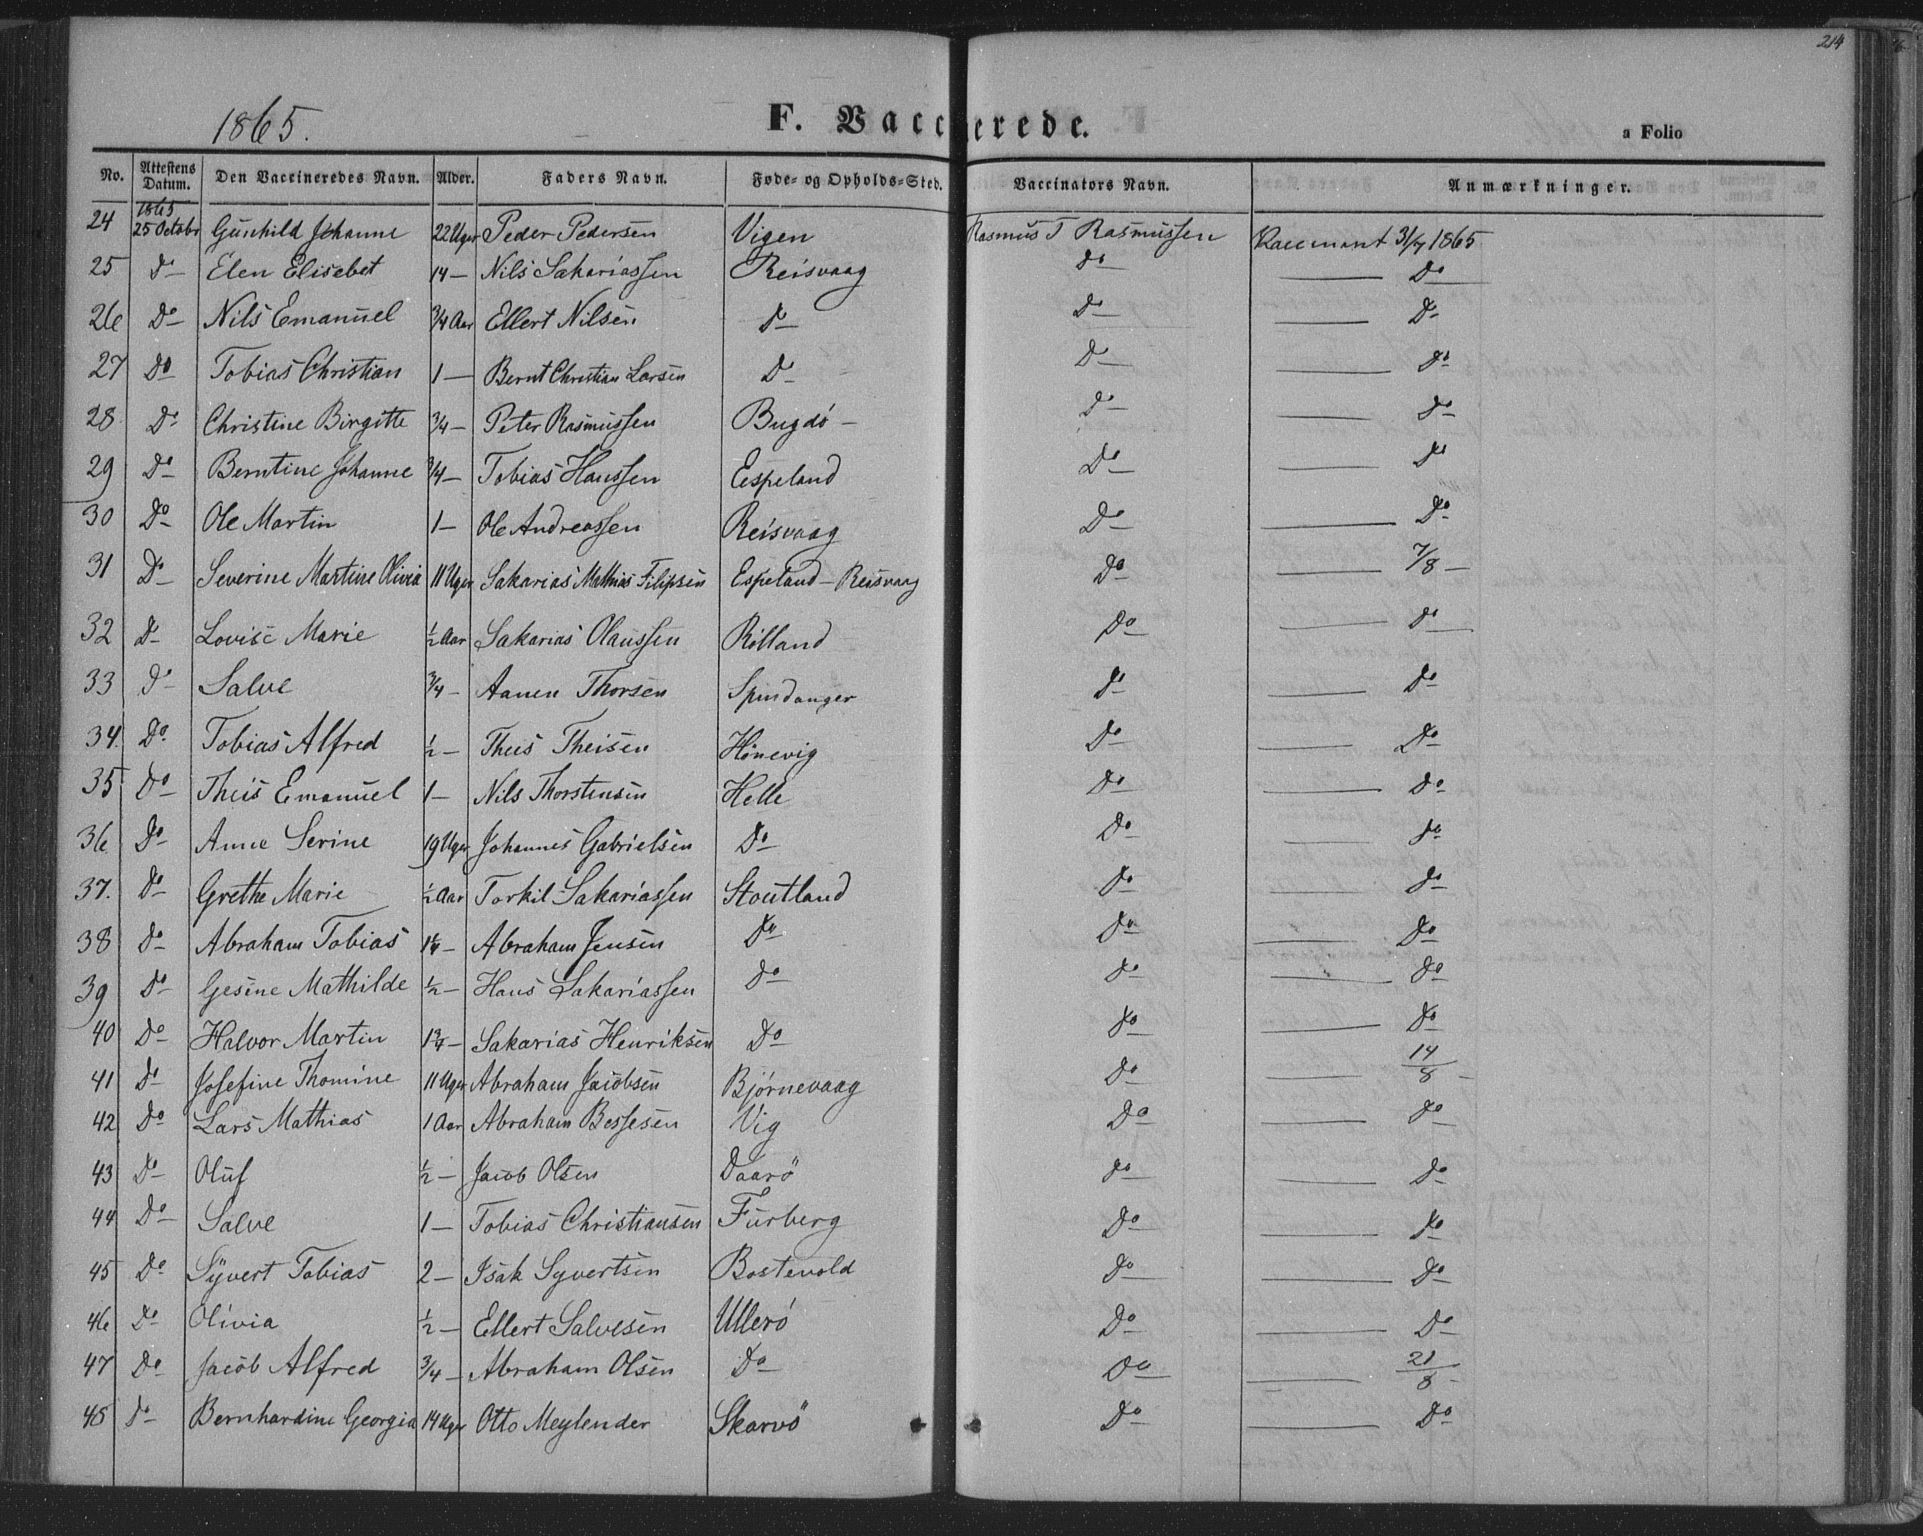 214
1865.
F. Vaccinerede.
a Folio
No. Attestens Datum. Den Vaccineredes Navn. Alder. Faders Navn. Føde- og Opholds-Sted. Vaccinators Navn. Anmærkninger.
1865
24 25 Octobr Gunhild Johanne 22 Uger Peder Pedersen Vigen Rasmus T Rasmussen Vaccineret 31/7 1865
25 Do Elen Elisebet 14 — Nils Sakariassen Reisvaag Do — Do
26 Do Nils Emanuel 3/4 Aar Ellert Nilsen Do Do — Do
27 Do Tobias Christian 1 — Bernt Christian Larsen Do Do — Do
28 Do Christine Birgitte 3/4 — Peter Rasmussen Bugdö — Do — Do
29 Do Berntine Johanne 3/4 — Tobias Hanssen Eespeland Do — Do
30 Do Ole Martin 1 — Ole Andreassen Reisvaag Do — Do
31 Do Severine Martine Olivia 11 Uger Sakarias Mathias Filipsen Espeland — Reisvaag Do — 7/8 —
32 Do Lovise Marie 1/2 Aar Sakarias Olaussen Rölland Do — Do
33 Do Salve 3/4 — Aanen Thorsen Spindanger Do — Do
34. Do Tobias Alfred 1/2 — Theis Theisen Hönevig Do — Do
35 Do Theis Emanuel 1 — Nils Thorstensen Helle Do — Do
36 Do Anne Serine 19 Uger Johannes Gabrielsen Do Do — Do
37. Do Grethe Marie 1/2 Aar Torkil Sakariassen Stoutland Do — Do
38 Do Abraham Tobias 1 1/4 — Abraham Jensen Do Do — Do
39 Do Gesine Mathilde 1/2 — Hans Sakariassen Do Do — Do
40 Do Halvor Martin 1 3/4 — Sakarias Henriksen Do Do — Do
41 Do Josefine Thomine 11 Uger Abraham Jacobsen Bjørnevaag Do — 14/8 —
42 Do Lars Mathias 1 Aar Abraham Bessesen Vig Do — Do
43 Do Oluf 1/2 — Jacob Olsen Daarö Do — Do
44 Do Salve 1 — Tobias Christiansen Furberg Do — Do
45 Do Syvert Tobias 2 — Isak Syvertsen Bostevold Do — Do
46 Do Olivia 1/2 — Ellert Salvesen Ullerö Do — Do
47 Do Jacob Alfred 3/4 — Abraham Olsen Do Do — 21/8 —
48 Do Bernhardine Georgia 14 Uger Otto Meylender Skarvö Do — Do